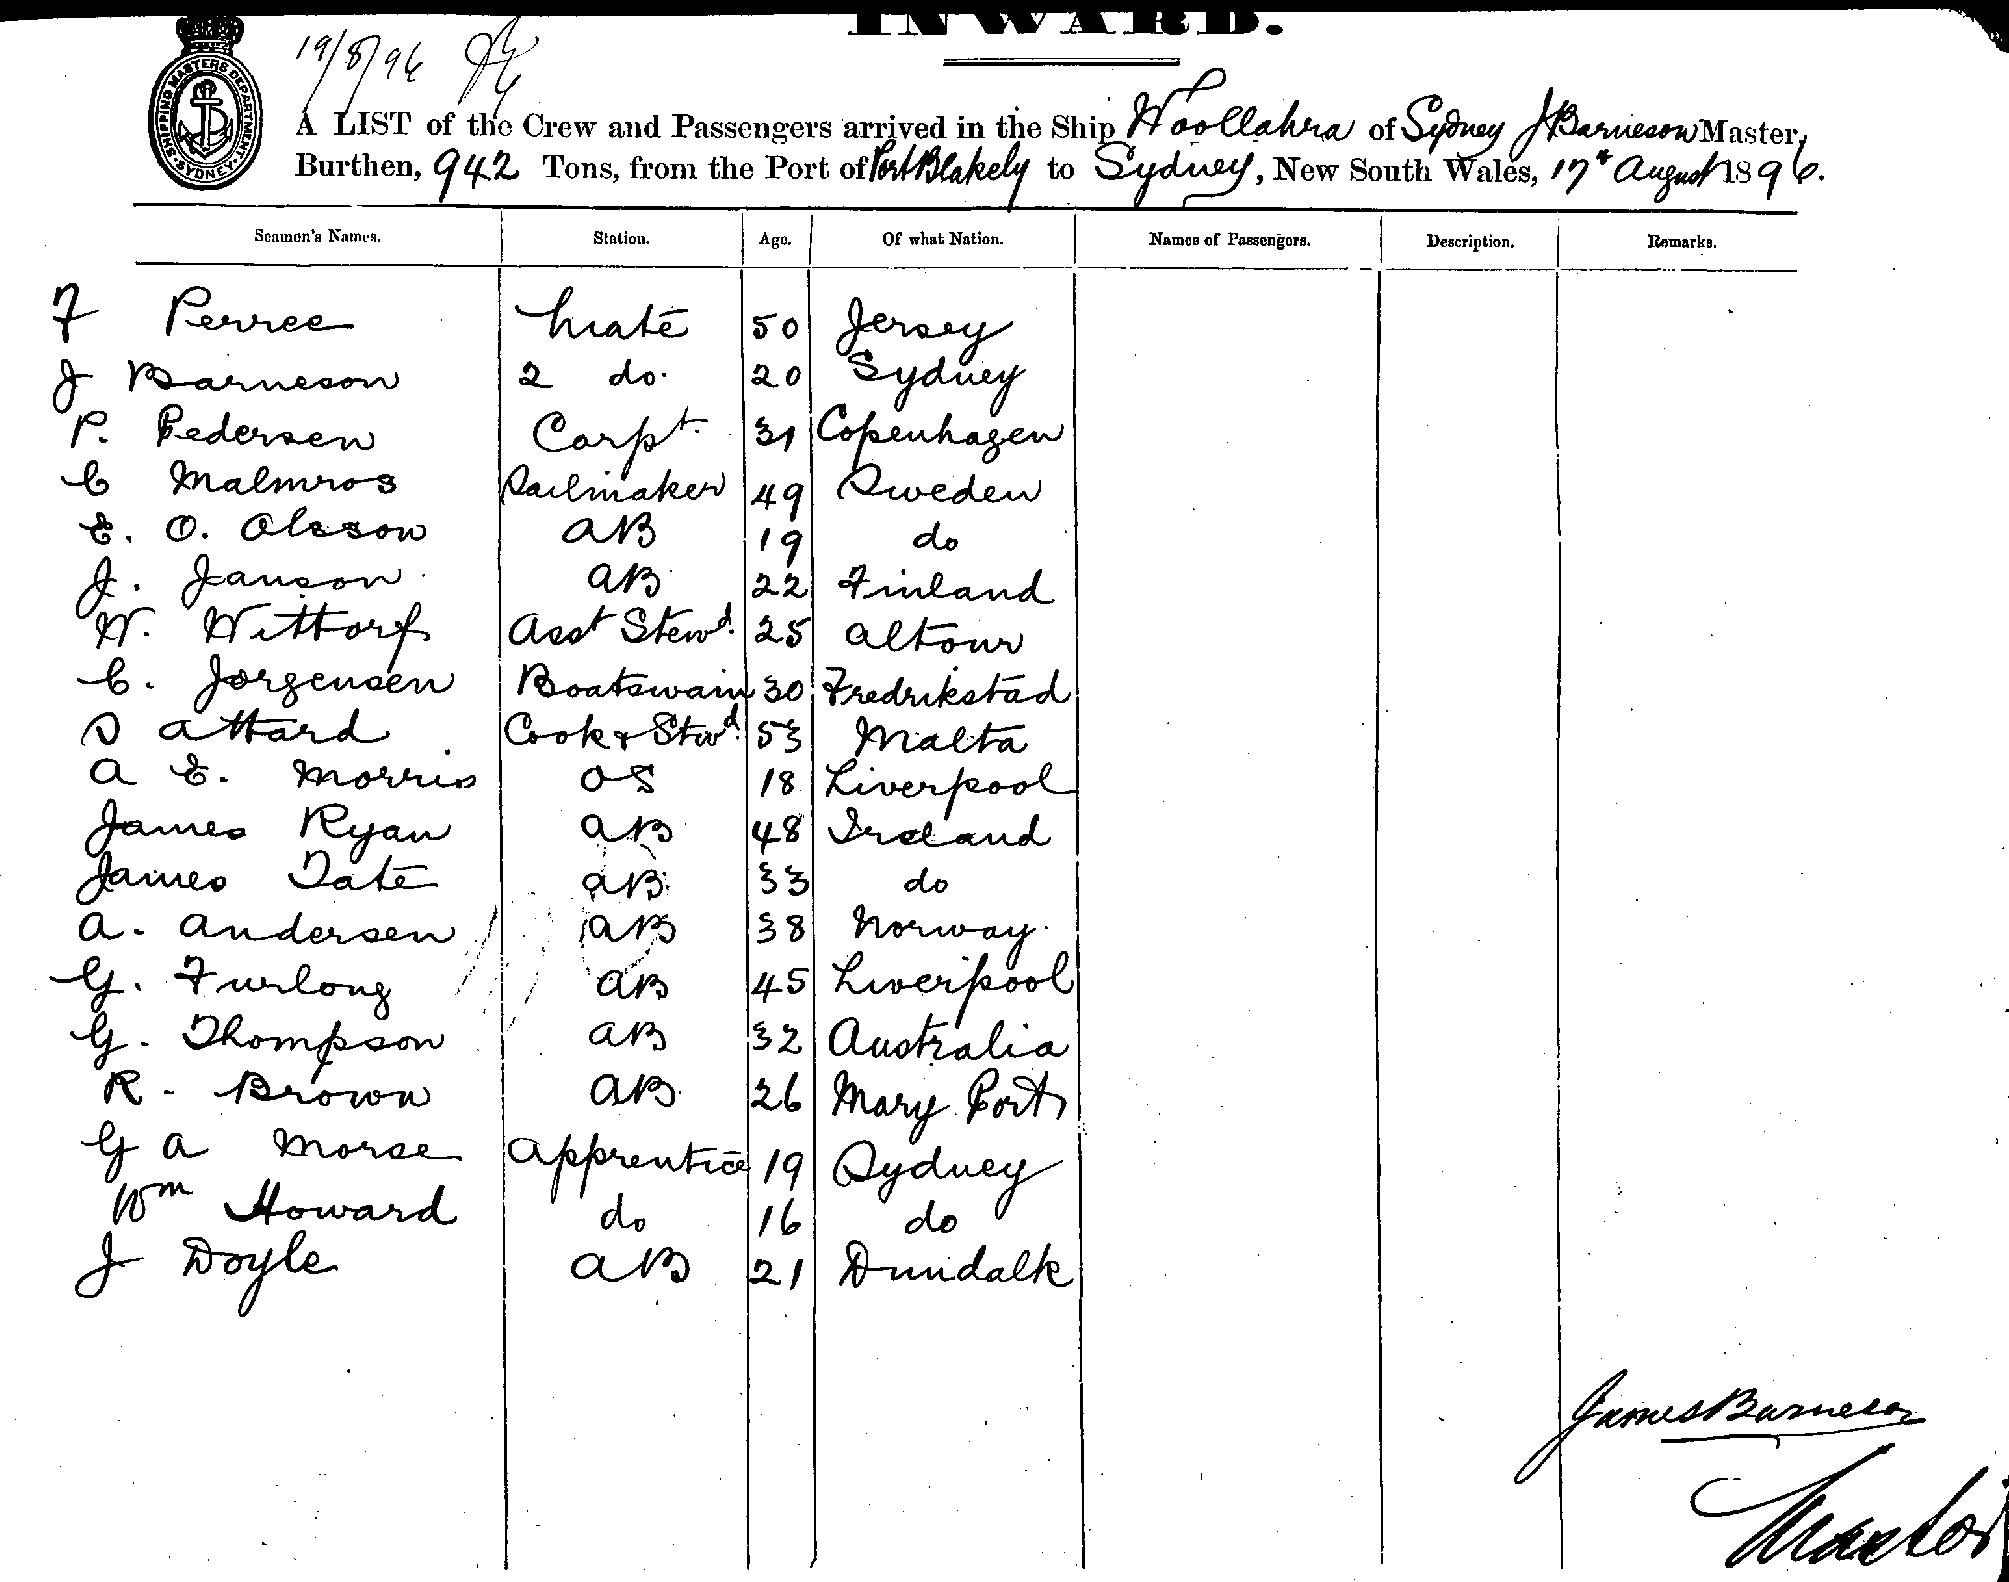 INWARD.
19/8/96
SHIPPING MASTERS DEPARTMENT. SYDNEY.
A LIST of the Crew and Passengers arrived in the Ship Woollahra of Sydney J Barneson Master,
Burthen, 942 Tons, from the Port of Port Blakely to Sydney, New South Wales, 17th August 1896.
Seamen's Names. Station. Age. Of what Nation. Names of Passengers. Description. Remarks.
F Perree Mate 50 Jersey
J Barneson 2 do. 20 Sydney
P. Pedersen Carpt. 31 Copenhagen
C Malmros Sailmaker 49 Sweden
E. O. Olsson AB 19 do
J. Janson AB 22 Finland
W. Wittorf Asst Stewd. 25 Altour
C. Jorgensen Boatswain 30 Fredrikstad
S Attard Cook & Stwd. 53 Malta
A E. Morris OS 18 Liverpool
James Ryan AB 48 Ireland
James Tate AB 33 do
A. Andersen AB 38 Norway.
G. Furlong AB 45 Liverpool
G. Thompson AB 32 Australia
R. Brown AB 26 Mary Port
G A Morse Apprentice 19 Sydney
Wm Howard do 16 do
J Doyle AB 21 Dundalk
James Barneson
Master